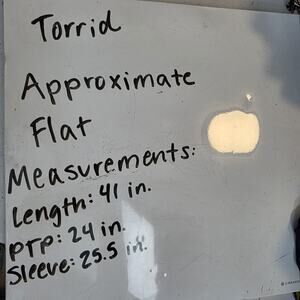 Torrid
Approximate
Flat
Measurements:
Length: 41 in.
PTP: 24 in.
Sleeve: 25.5 in.